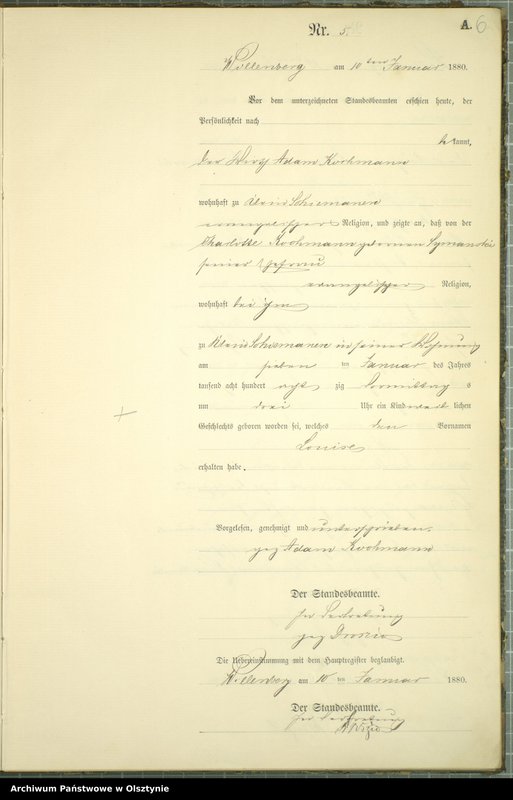 A. 6
Nr. 5.
Willenberg am 10 ten Januar 1880.
Vor dem unterzeichneten Standesbeamten erschien heute, der
Persönlichkeit nach
bekannt,
der Adam Kochmann
wohnhaft zu Klein Schiemanen
evangelischer Religion, und zeigte an, daß von der
Charlotte Kochmann geborenen Symanski
seiner Ehefrau
evangelischer Religion,
wohnhaft bei ihm
zu Klein Schiemanen in seiner Wohnung
am sieben ten Januar des Jahres
tausend acht hundert acht zig Vormittag s
um drei Uhr ein Kind weib lichen
Geschlechts geboren worden sei, welches den Vornamen
Louise
erhalten habe.
Vorgelesen, genehmigt und unterschrieben.
gez Adam Kochmann
Der Standesbeamte.
In Vertretung
gez
Die Uebereinstimmung mit dem Hauptregister beglaubigt.
Willenberg am 10 ten Januar 1880.
Der Standesbeamte.
In Vertretung
Archiwum Państwowe w Olsztynie